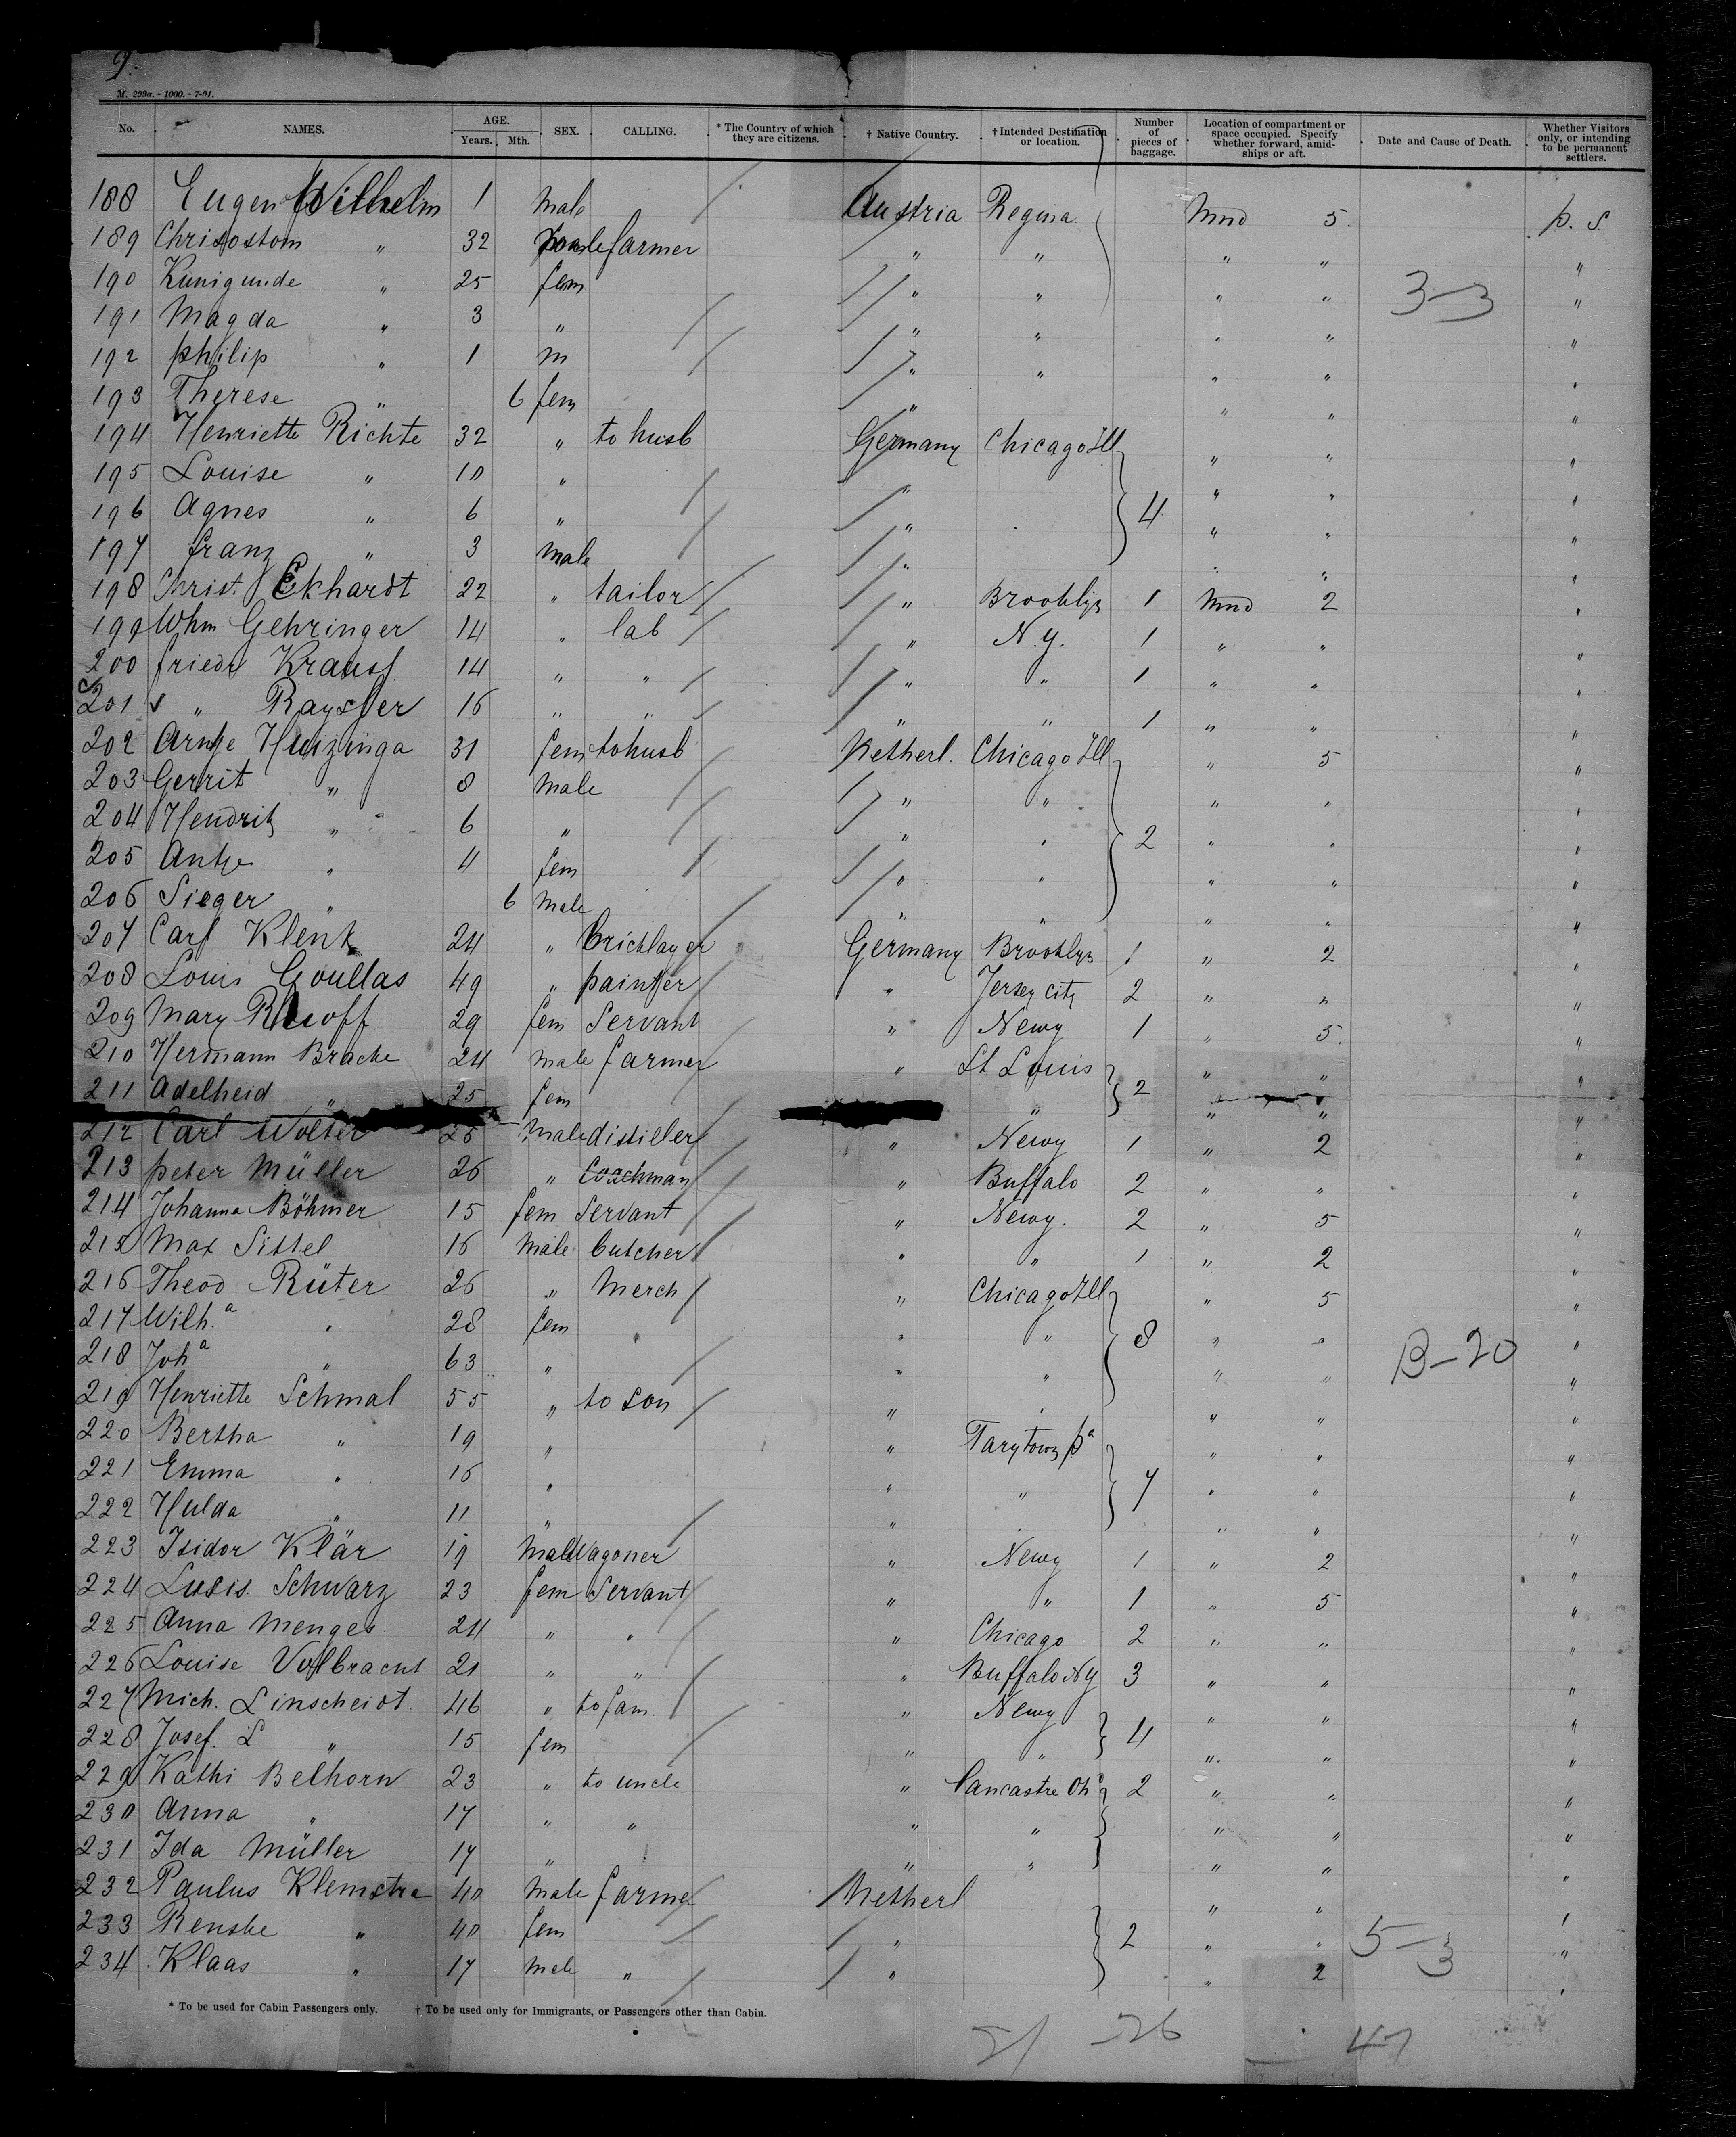 9.
M. 299a. - 1000. - 7-91.
No. NAMES. AGE. Years. Mth. SEX. CALLING. * The Country of which they are citizens. † Native Country. † Intended Destination or location. Number of pieces of baggage. Location of compartment or space occupied. Specify whether forward, amidships or aft. Date and Cause of Death. Whether Visitors only, or intending to be permanent settlers.
188 Eugen Wilhelm 1 male Austria Regina Mnd 5. p. s
189 Chrisostom " 32 male farmer " " " " "
190 Kunigunde " 25 fem " " " " 3-3 "
191 Magda " 3 " " " " " "
192 Philip " 1 m " " " " "
193 Therese " 6 fem " " " "
194 Henriette Richte 32 " to husb Germany Chicago Ill " " "
195 Louise " 10 " " " " "
196 Agnes " 6 " " 4 " " "
197 franz " 3 male " " " "
198 Christ. Ekhardt 22 " tailor " Brooklyn 1 Mnd 2 "
199 Whm Gehringer 14 " lab " N.y. 1 " " "
200 friedr Krauss 14 " " " " 1 " " "
201 " Raysser 16 " " " " 1 " " "
202 Antje Huizinga 31 fem to husb Netherl. Chicago Ill " 5 "
203 Gerrit " 8 male " " " " "
204 Hendrik " 6 " " " 2 " " "
205 Antje " 4 fem " " " " "
206 Sieger " 6 male " " " " "
207 Carl Klenk 24 " bricklayer Germany Brooklyn 1 " 2 "
208 Louis Goullas 49 " painter " Jersey City 2 " " "
209 Mary 29 fem Servant " Newy 1 " 5. "
210 Hermann Bracke 24 male farmer " St Louis " " "
211 Adelheid " 25 fem " 2 " " "
212 Carl Wolter 25 male distiller " Newy 1 " 2 "
213 peter Müller 26 " Coachman " Buffalo 2 " " "
214 Johanna Böhmer 15 fem Servant " Newy. 2 " 5 "
215 Max Sittel 16 male butcher " " 1 " 2 "
216 Theod Rüter 26 " Merch " Chicago Ill " 5 "
217 Wilh.a " 28 fem " " " 8 " " "
218 Joha " 63 " " " " " B-20 "
219 Henriette Schmal 55 " to son " " " " "
220 Bertha " 19 " " Tarytown pa " " "
221 Emma " 16 " " " 7 " " "
222 Hulda " 11 " " " " " "
223 Isidor Klär 19 male Wagoner " Newy 1 " 2 "
224 Schwarz 23 fem Servant " " 1 " 5 "
225 Anna Menges 24 " " " Chicago 2 " " "
226 Louise Vollbracht 21 " " " Buffalo Ny 3 " " "
227 Mich. Linscheidt 46 " to fam. " Newy " " "
228 Josef. L " 15 fem " " 4 " " "
229 Kathi Belhorn 23 " to uncle " Lancastre Oh 2 " " "
230 Anna " 17 " " " " " " "
231 Ida Müller 17 " " " " " "
232 Paulus Klemstra 40 male farmer Netherl " " "
233 Renske " 40 fem " 2 " " 5-3 "
234 Klaas " 17 male " " " 2 "
* To be used for Cabin Passengers only. † To be used only for Immigrants, or Passengers other than Cabin.
21 -26 47